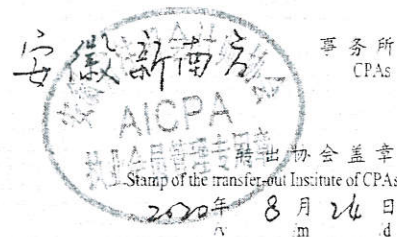 安徽新南方 事务所
CPAs
AICPA
执业会员管理专用章
转出协会盖章
Stamp of the transfer-out Institute of CPAs
2020年 8月 24日
/y /m /d